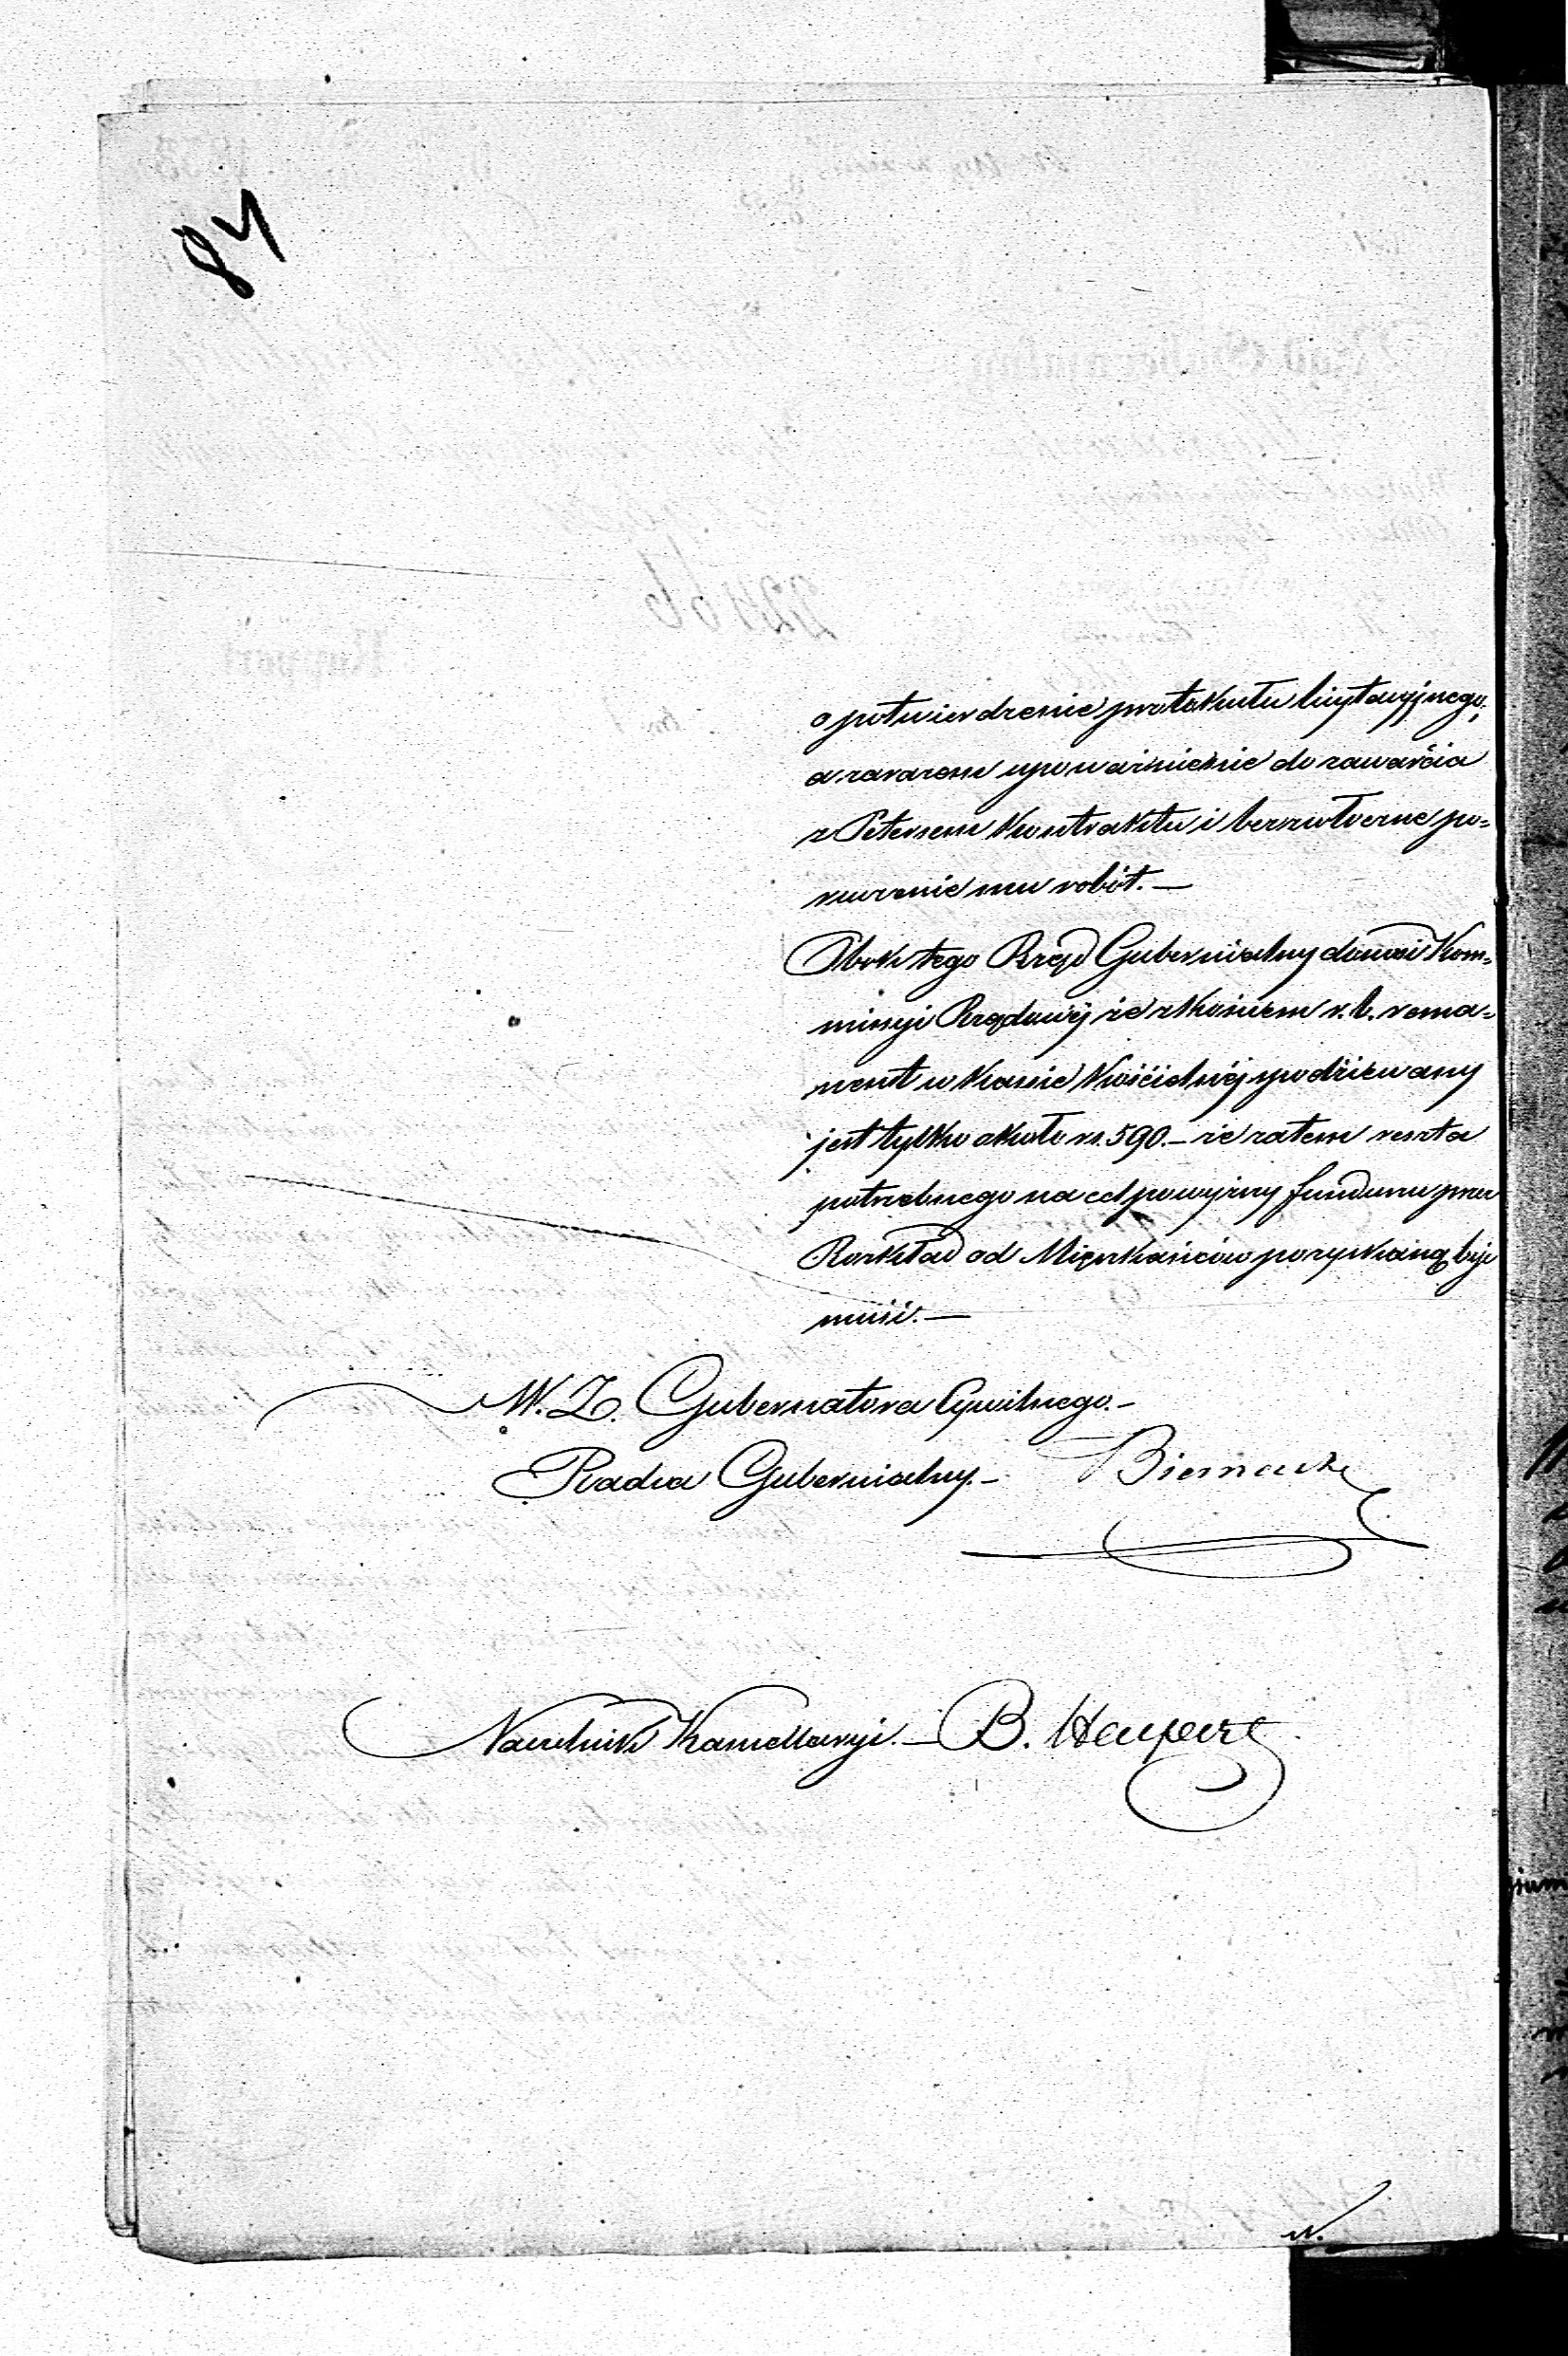 84
o potwierdzenie protokułu licytacyjnego,
a zarazem upoważnienie do zawarcia
z Petersem kontraktu i bezzwłoczne po=
ruczenie mu robót.—
Obok tego Rząd Gubernialny donosi Kom=
missyi Rządowéj że z końcem r. b. rema=
nent w kassie kościelnéj spodziewany
jest tylko około rs. 590.— że zatem reszta
potrzebnego na cel powyższy funduszu przez
Rozkład od Mięszkańców pozyskaną być
musi.—
W. Z. Gubernatora Cywilnego.—
Radca Gubernialny.— Biernacki
Naczelnik Kancellaryi.— B.